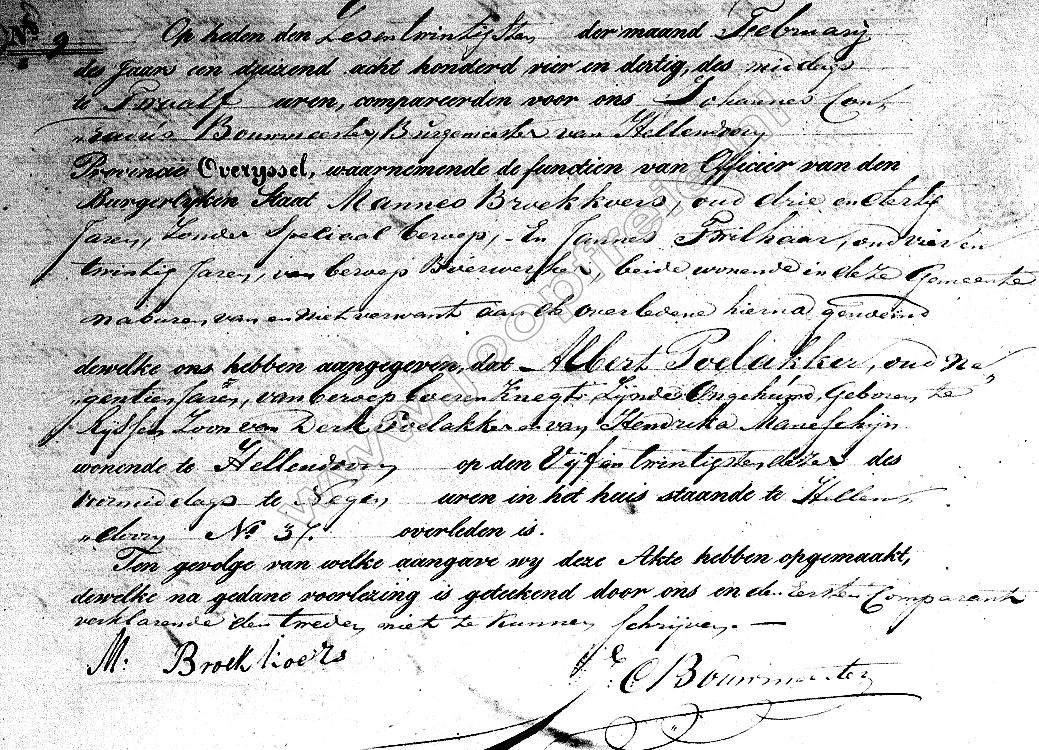 No 9
Op heden den Zesentwintigsten der maand February
des Jaars een duizend acht honderd vier en dertig, des middags
te Twaalf uren, compareerden voor ons Johannes Con-
"radus Bouwmeester, Burgemeester van Hellendoorn
Provincie Overyssel, waarnemende de functien van Officier van den
Burgerlyken Staat Mannes Broekhoers, oud drie en dertig
Jaren, Zonder Speciaal beroep, En Jannes Twilhaar, oud vier en
twintig Jaren, van beroep Boerwerker, beide wonende in deze Gemeente
naburen van en niet verwant aan de overledene hierna genoemd
dewelke ons hebben aangegeven, dat Albert Poelakker, oud Ne
"gentien Jaren, van beroep boeren Knegt Zijnde Ongehuwd, Geboren te
Ryssen Zoon van Derk Poelakker en van Hendrika Maneschijn
wonende te Hellendoorn op den Vijf en twintigsten dezer des
vermiddags te Negen uren in het huis staande te Hellen-
"doorn No 37. overleden is.
Ten gevolge van welke aangave wy deze Akte hebben opgemaakt,
dewelke na gedane voorlezing is geteekend door ons en den Eersten Comparant
verklarende den tweeden niet te kunnen schrijven.
M: Broekhoers
J C Bouwmeester
www.joopfrei.com